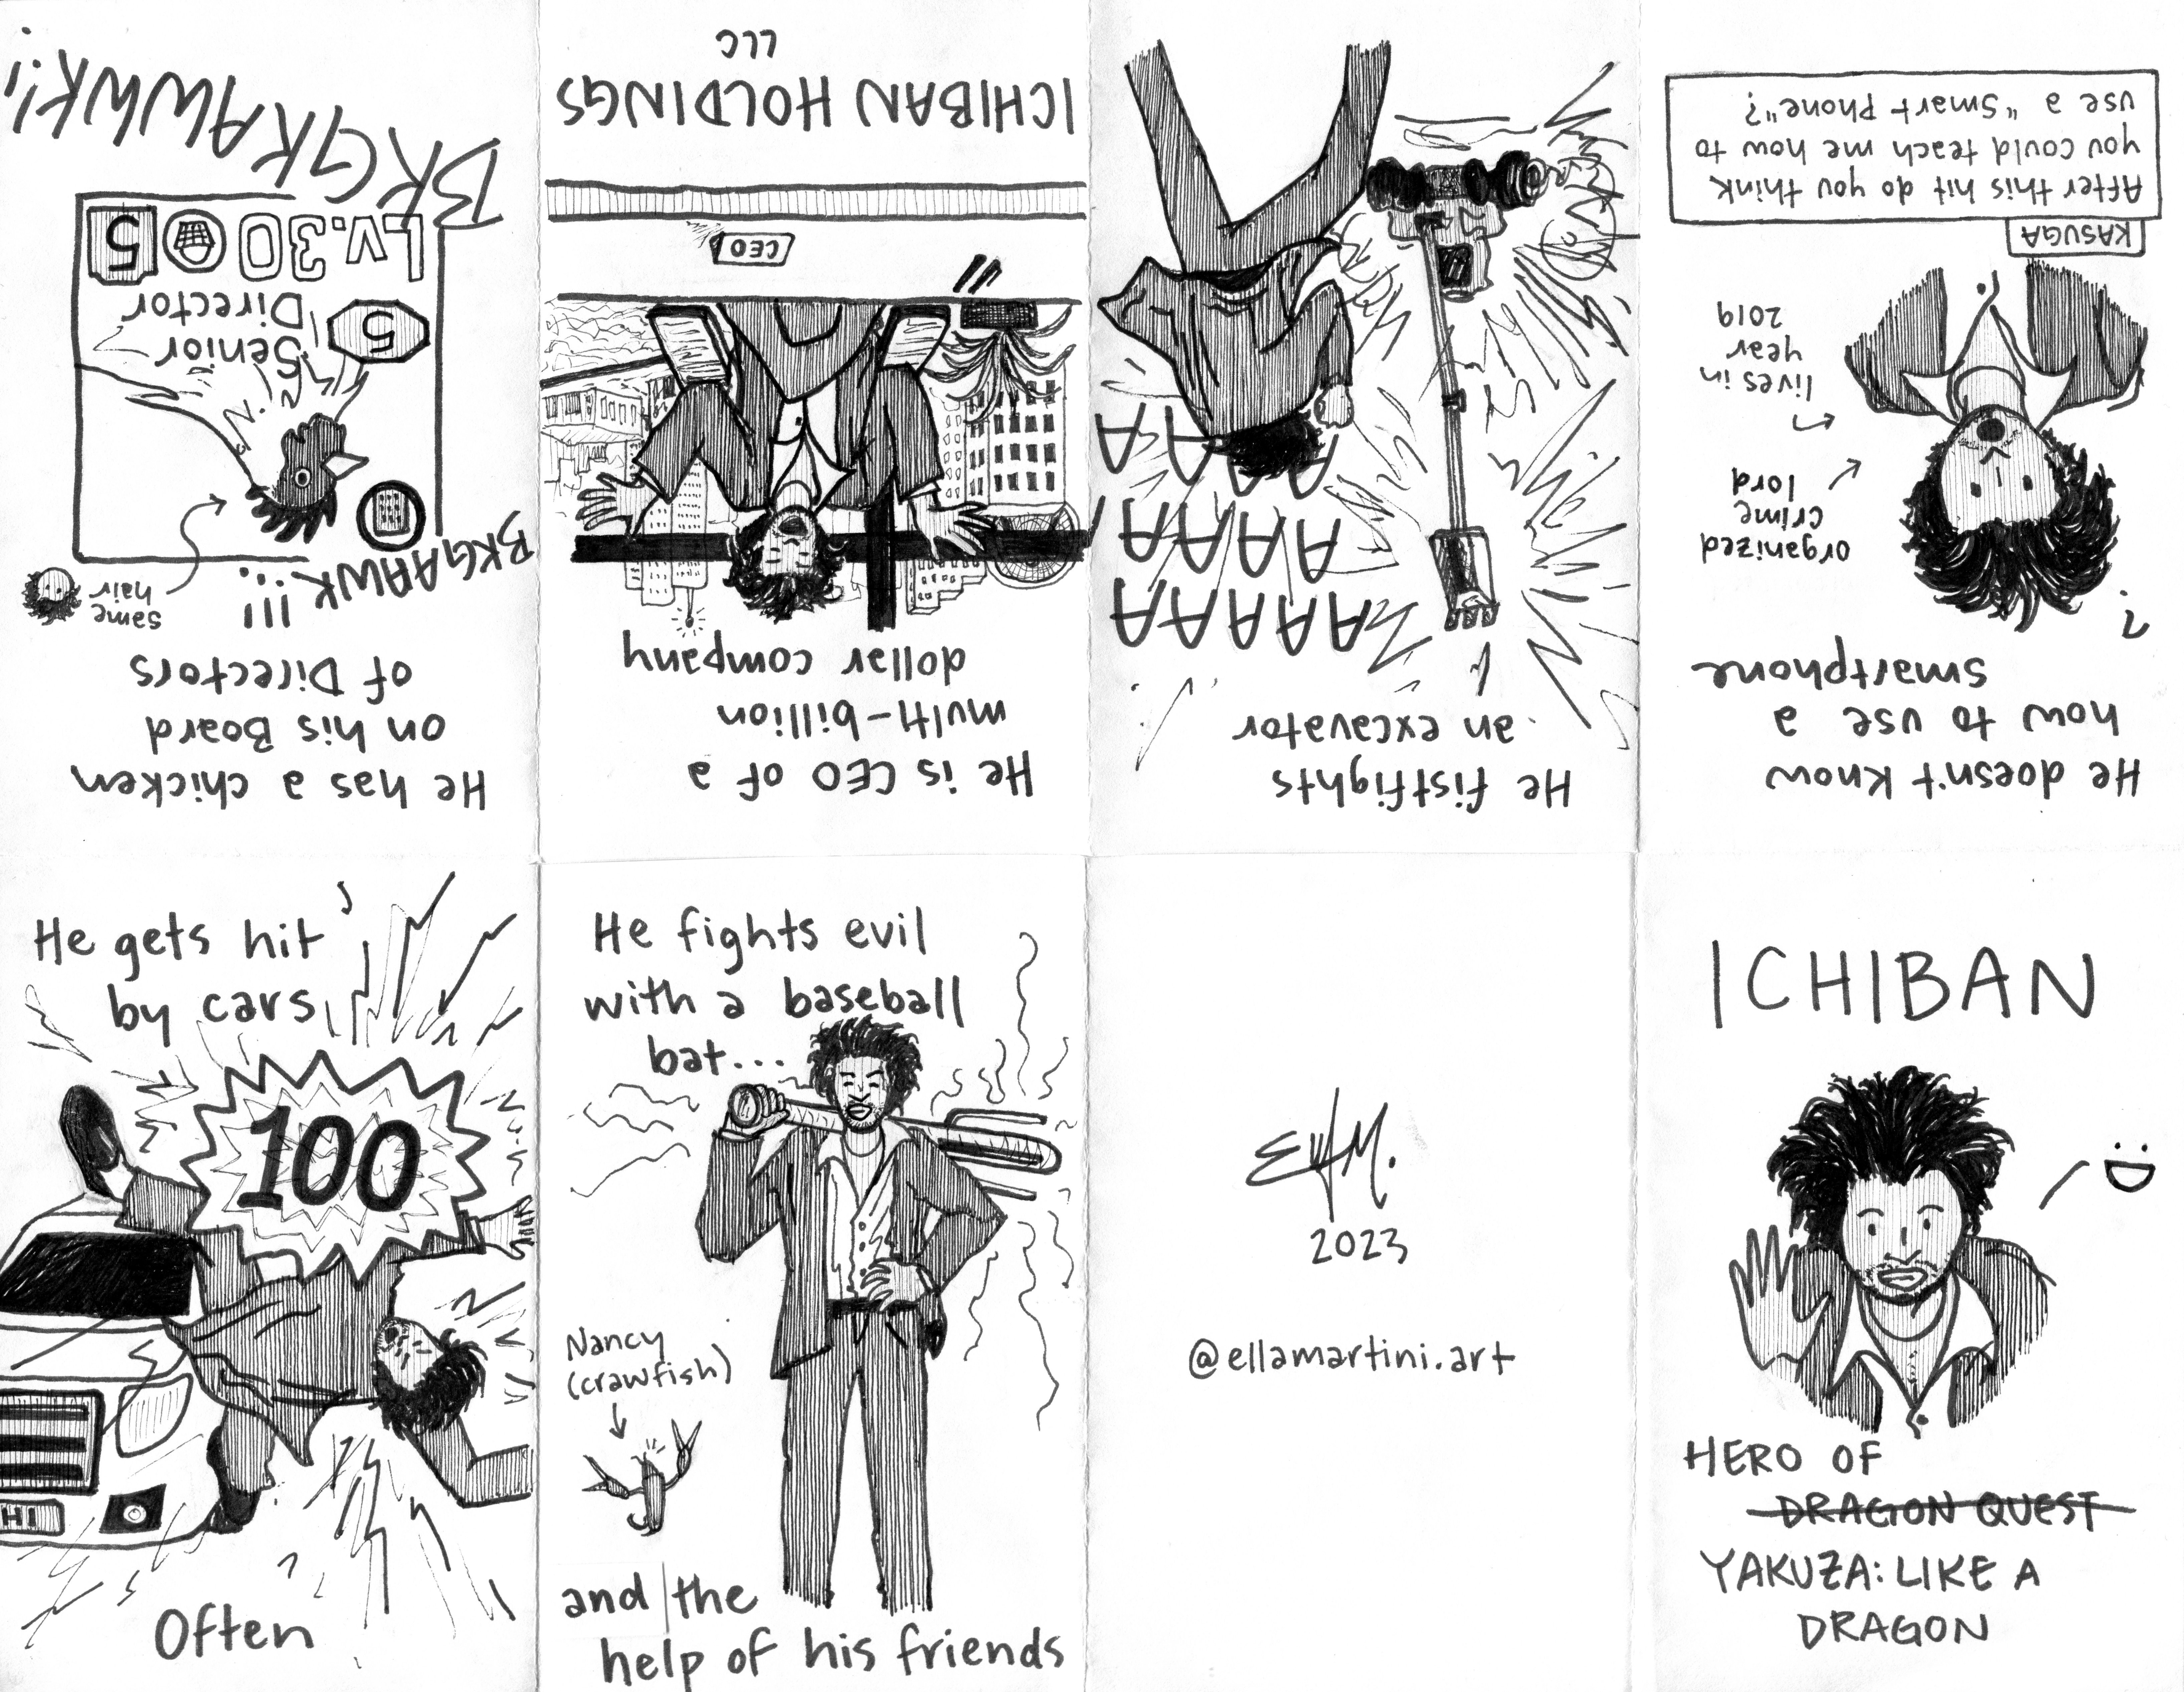 ICHIBAN
HERO OF
DRAGON QUEST
YAKUZA: LIKE A
DRAGON
He doesn't know
how to use a
smartphone
?
organized
crime
lord
lives in
year
2019
KASUGA
After this hit do you think
you could teach me how to
use a "Smart Phone"?
He fistfights
an excavator
AAAAA
AAAA
AAAA
He is CEO of a
multi-billion
dollar company
CEO
ICHIBAN HOLDINGS
LLC
He has a chicken
on his Board
of Directors
same
hair
BKGAAWK!!!
5
Senior
Director
Lv.30 5
BKGKAWWK!!
He gets hit
by cars
100
HI
Often
He fights evil
with a baseball
bat...
Nancy
(crawfish)
and the
help of his friends
EM.
2023
@ellamartini.art